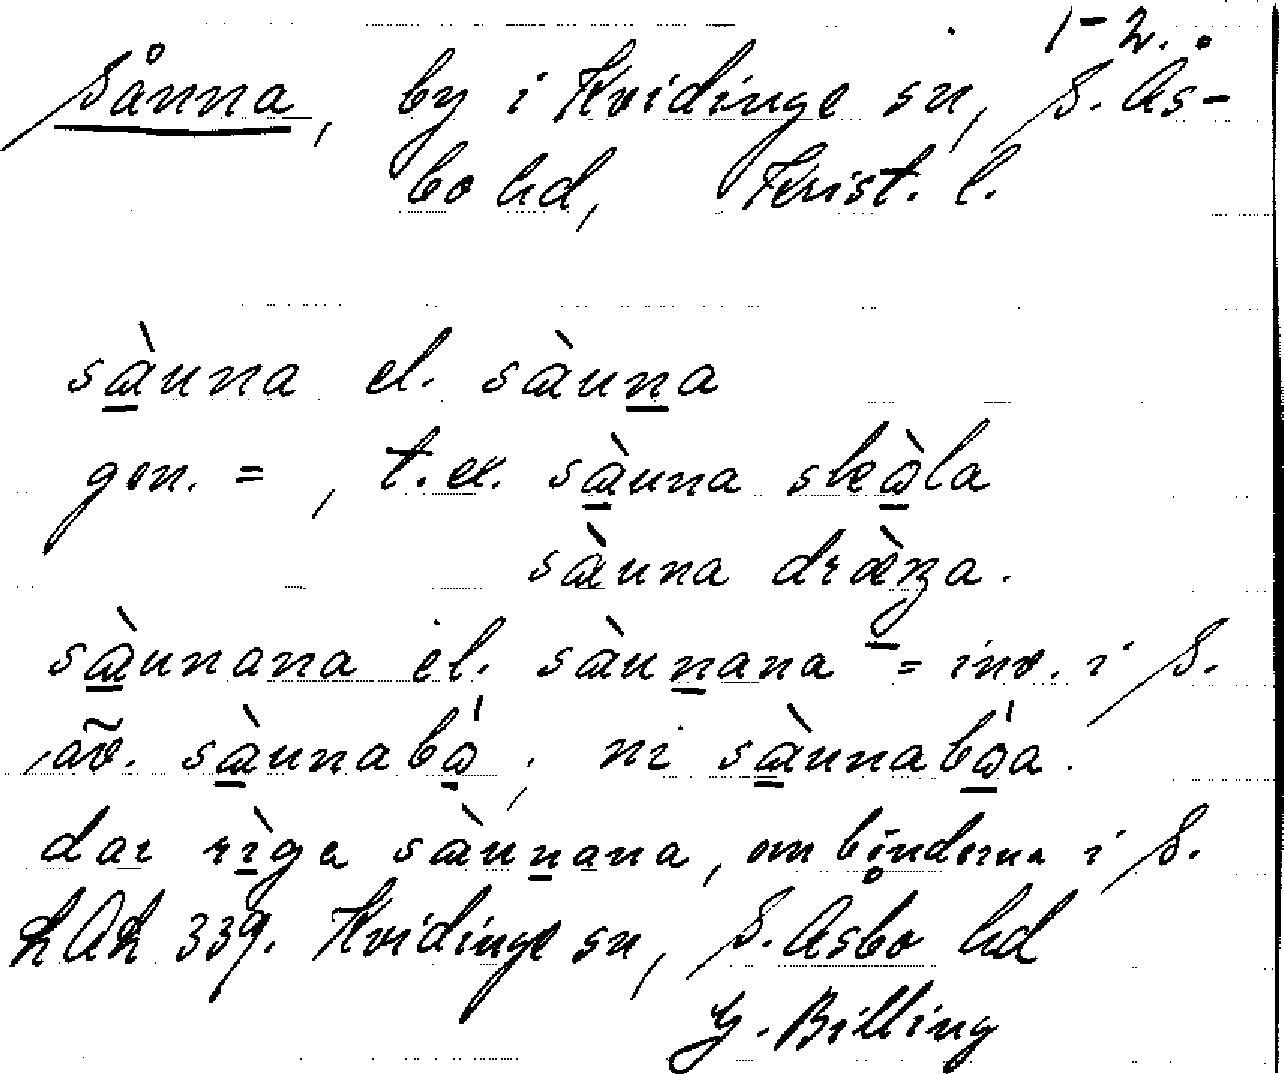 1-2.
Sånna, by i Kvidinge sn, S. Ås-
bo hd, Krist. l.
sæ̀unna el. sæ̀unna
gen. = , t.ex. sæ̀unna skòla
sæ̀unna
sæ̀unnana el. sæ̀unnana = inv. i S.
äv. sæ̀unnabò, ni sæ̀unnabòa.
dar rìga sæ̀unnana, om bönderna i S.
LAL 339. Kvidinge sn, S. Åsbo hd
G. Billing